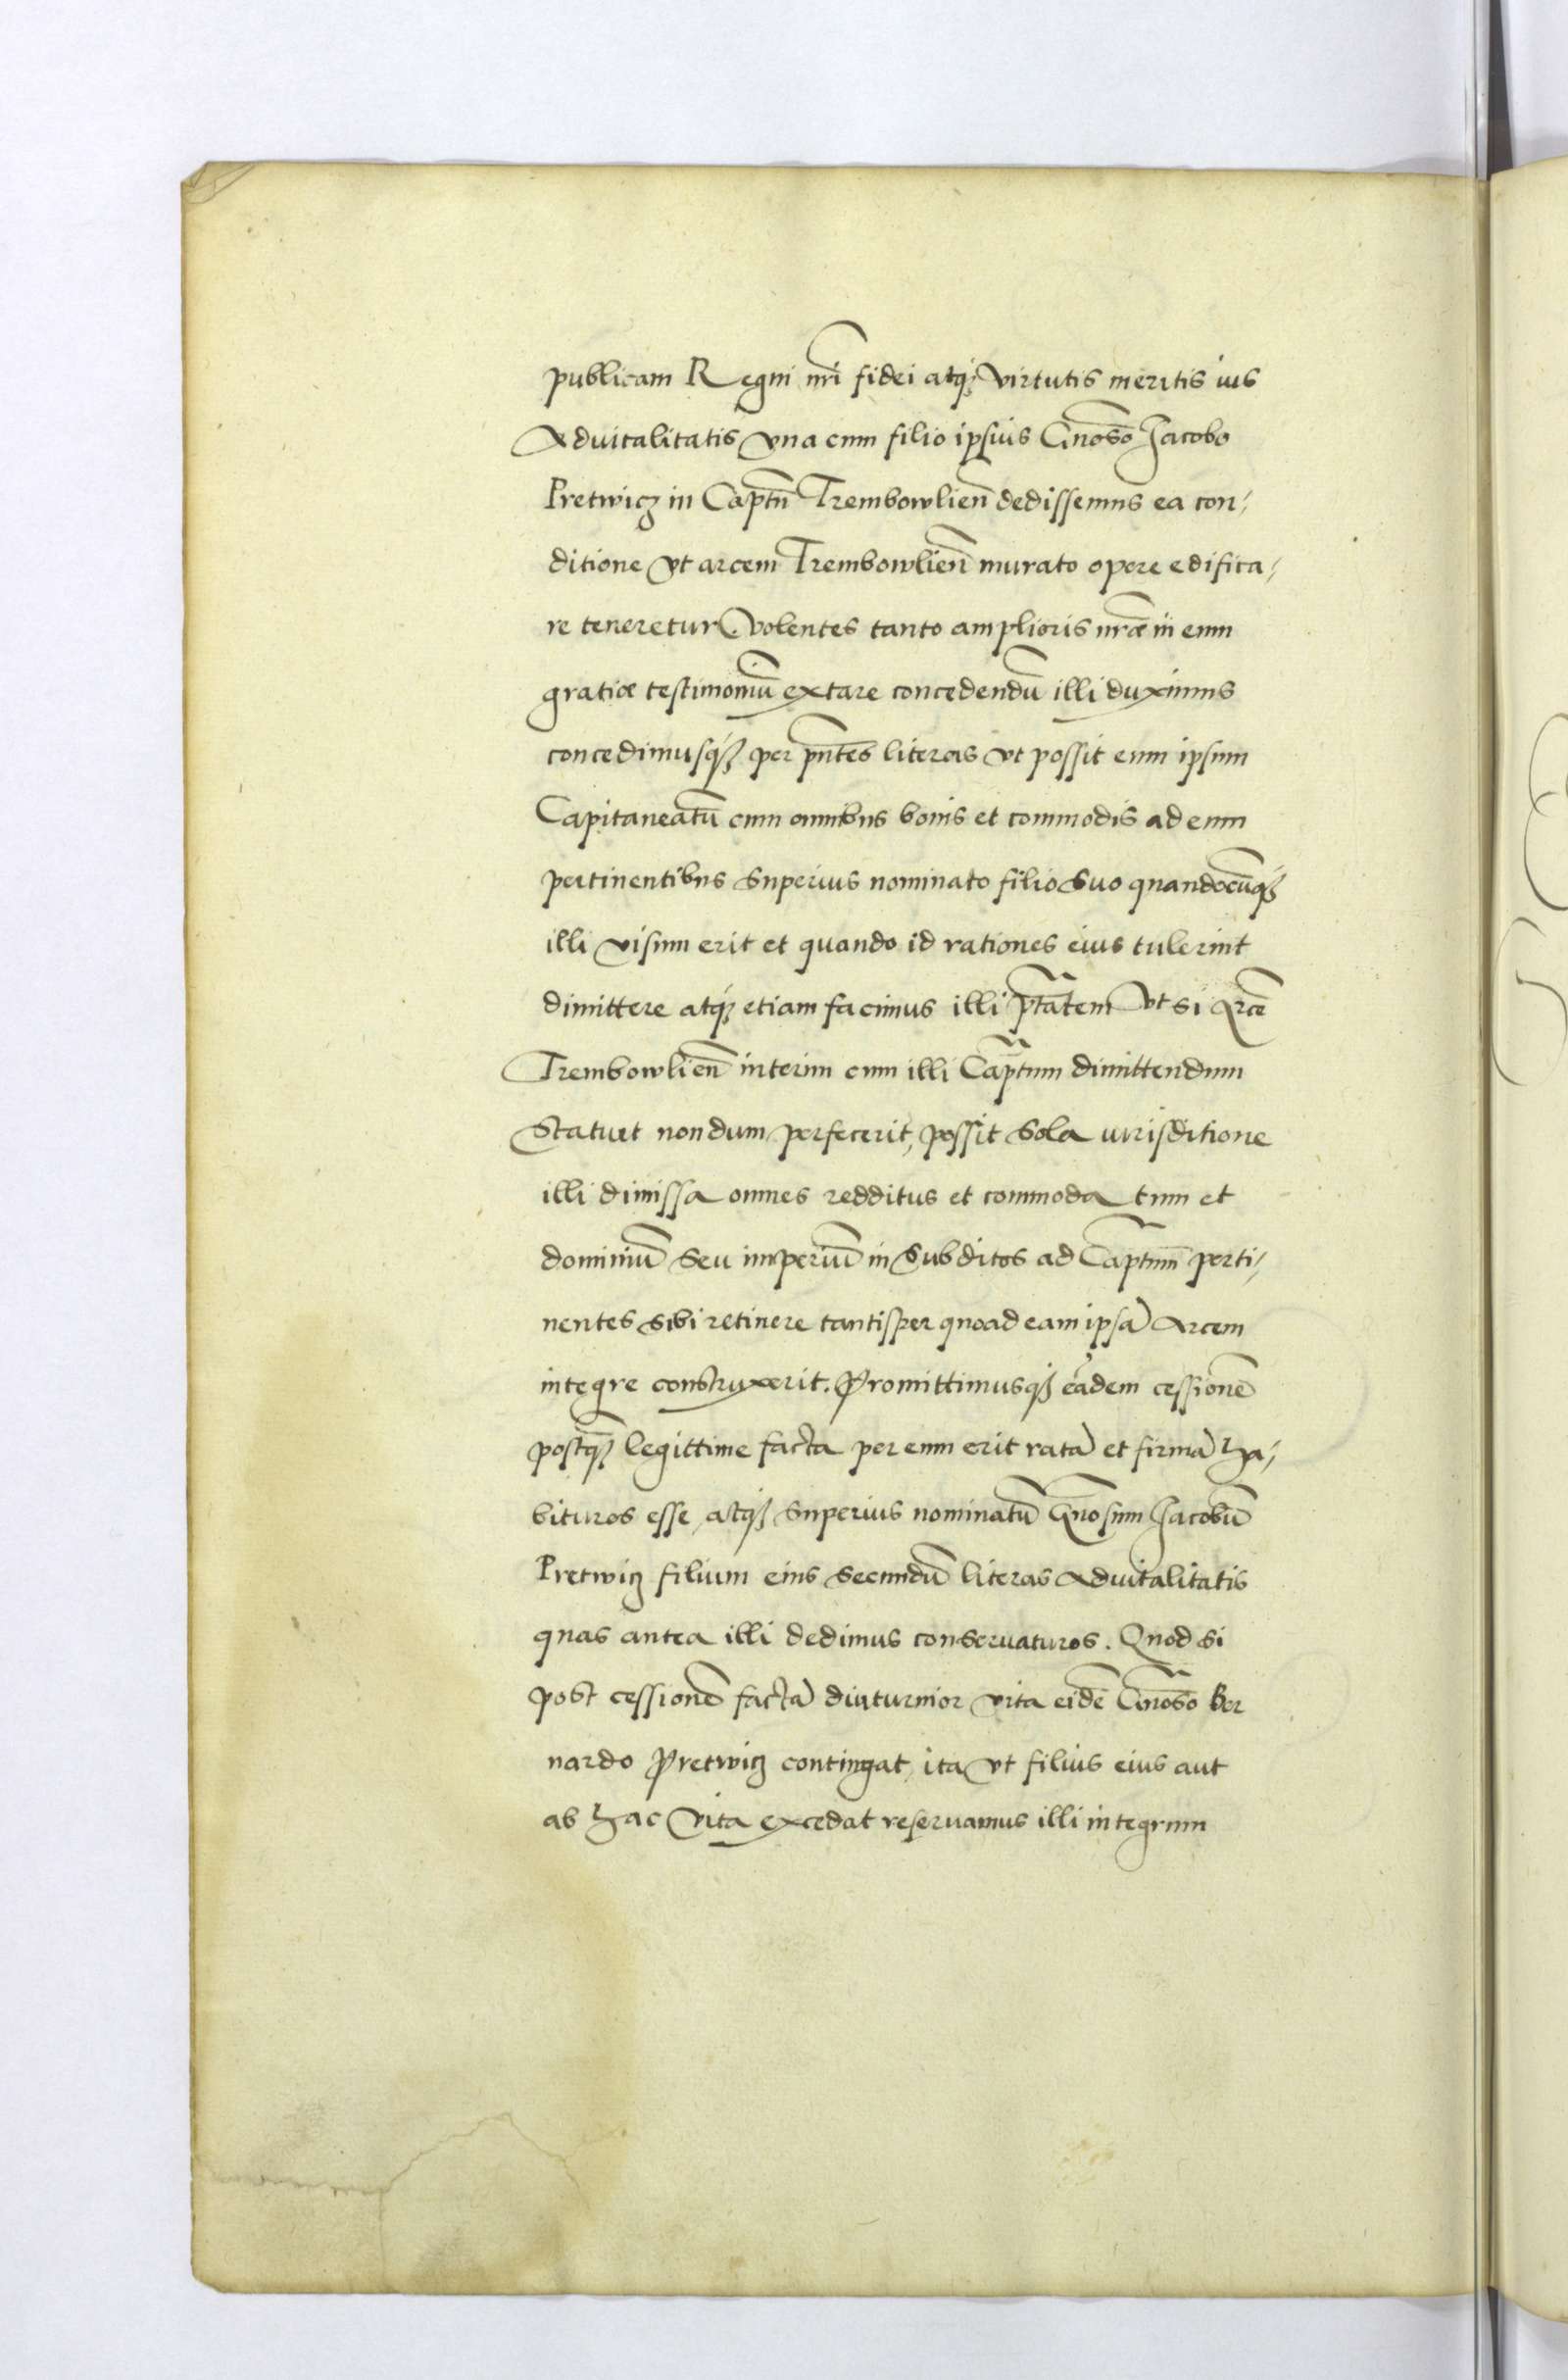 publicam Regni nr̃i fidei atq; virtutis meritis ius
aduitalitatis vna cum filio ipsius Gñoso Jacobo
Pretwicz in Captm̃ Trembowlień dedissemus ea con,
ditione vt arcem Trembowlień murato opere edifica,
re teneretur. Volentes tanto amplioris nr̃æ in eum
gratiæ testimoniũ extare concedendũ illi duximus
concedimusq; per pñtes literas vt possit eum ipsum
Capitaneatũ cum omnibus bonis et commodis ad eum
pertinentibus superius nominato filio suo quandocũq;
illi visum erit et quando id rationes eius tulerint
dimittere atq; etiam facimus illi ptãtem vt si arcẽ
Trembowlień interim cum illi Captum dimittendum
statuet nondum perfecerit, possit sola iurisditione
illi dimissa omnes redditus et commoda tum et
dominiũ seu imperiũ in subditos ad Captum̃ perti,
nentes sibi retinere tantisper quoad eam ipsã arcem
integre construxerit. Promittimusq; eãdem cessionẽ
postq̃ legittime facta per eum erit ratã et firmã ha,
bituros esse, atq; superius nominatũ Gñosum Jacobũ
Pretwicz filium eius secundũ literas aduitalitatis
quas antea illi dedimus conseruaturos. Quod si
post cessionẽ factã diuturnior vita eidẽ Gñoso Ber
nardo Pretwicz contingat, ita vt filius eius aut
ab hac vita excedat reseruamus illi integrum